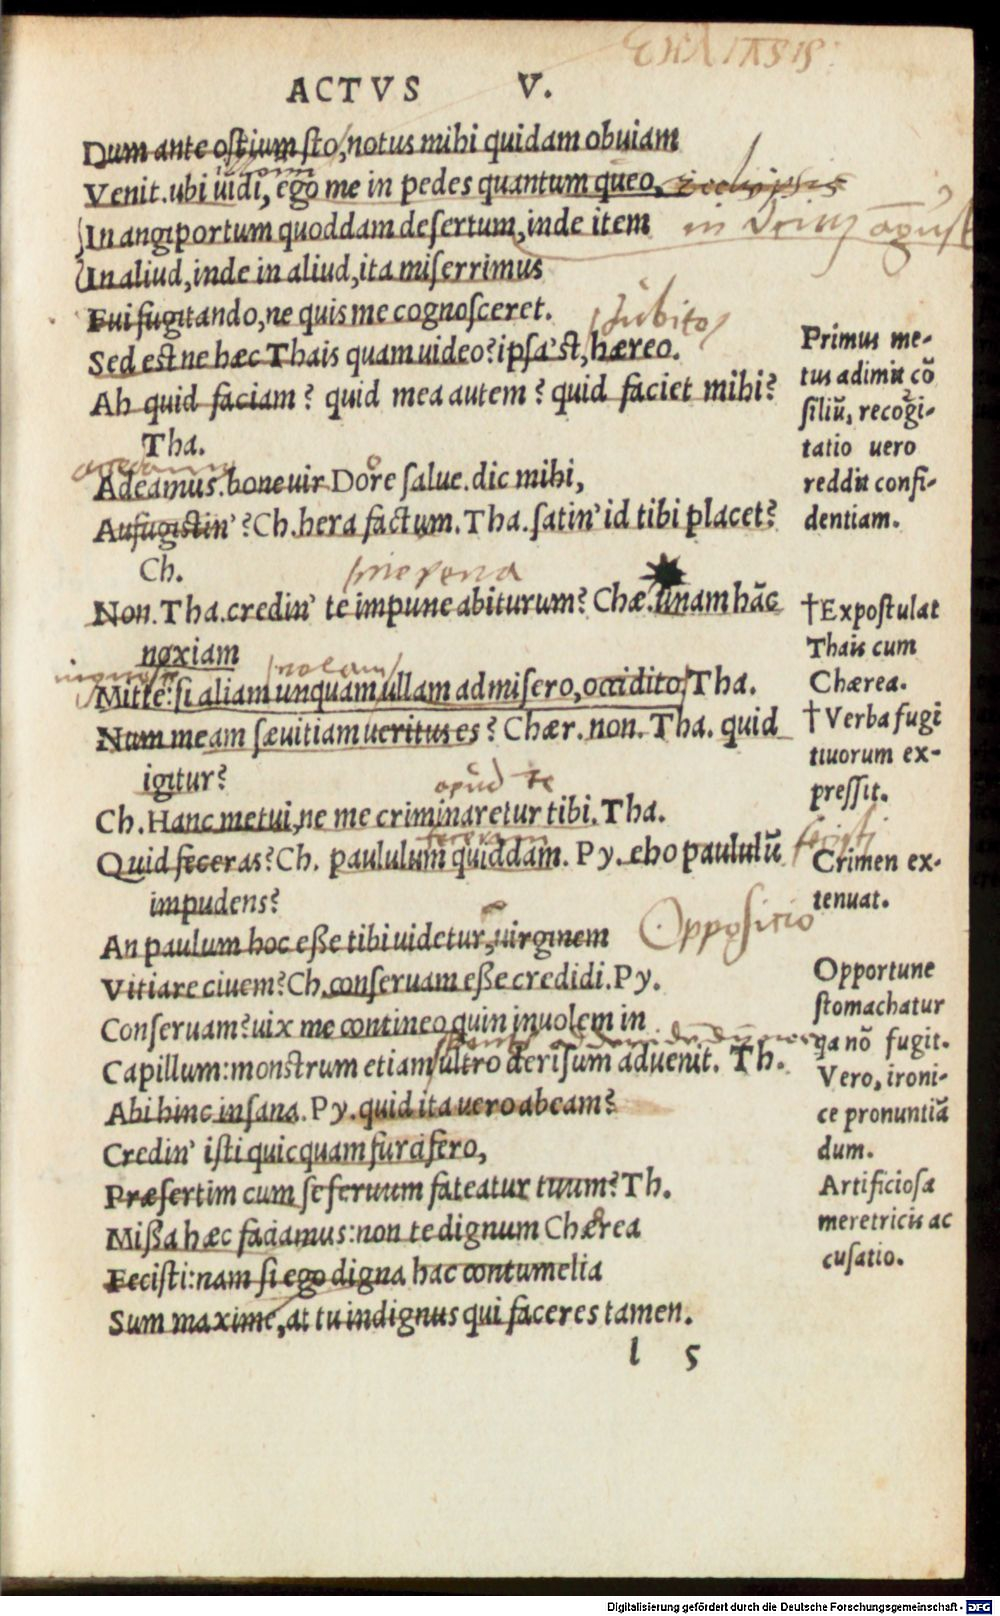 ACTVS V.
Dum ante ostium sto, notus mihi quidam obuiam
Venit. ubi uidi, ego me in pedes quantum queo,
In angiportum quoddam desertum, inde item
In aliud, inde in aliud, ita miserrimus
Fui fugitando, ne quis me cognosceret.
subito
Sed est ne hæc Thais quam uideo? ipsa'st, hæreo.
Ah quid faciam? quid mea autem? quid faciet mihi?
Tha.
Adeamus. bone uir Dore salue. dic mihi,
Aufugistin'? Ch. hera factum. Tha. satin' id tibi placet?
Ch.
Non. Tha. credin' te impune abiturum? Chæ. unam hāc
noxiam
Mitte: si aliam unquam ullam admisero, occidito. Tha.
Num meam sæuitiam ueritus es? Chær. non. Tha. quid
igitur?
apud te
Ch. Hanc metui, ne me criminaretur tibi. Tha.
Quid feceras? Ch. paululum quiddam. Py. eho paululū
impudens?
Oppositio
An paulum hoc eße tibi uidetur, uirginem
Vitiare ciuem? Ch. conseruam eße credidi. Py.
Conseruam? uix me contineo quin inuolem in
Capillum: monstrum etiam ultro derisum aduenit. Th.
Abi hinc insana. Py. quid ita uero abeam?
Credin' isti quicquam furcifero,
Præsertim cum se seruum fateatur tuum? Th.
Mißa hæc faciamus: non te dignum Chærea
Fecisti: nam si ego digna hac contumelia
Sum maxime, at tu indignus qui faceres tamen.
l 5
Primus me-
tus adimit cō
siliū, recogi-
tatio uero
reddit confi-
dentiam.
†Expostulat
Thais cum
Chærea.
†Verba fugi
tiuorum ex-
pressit.
Crimen ex-
tenuat.
Opportune
stomachatur
qa nō fugit.
Vero, ironi-
ce pronuntiā
dum.
Artificiosa
meretricis ac
cusatio.
Digitalisierung gefördert durch die Deutsche Forschungsgemeinschaft - DFG